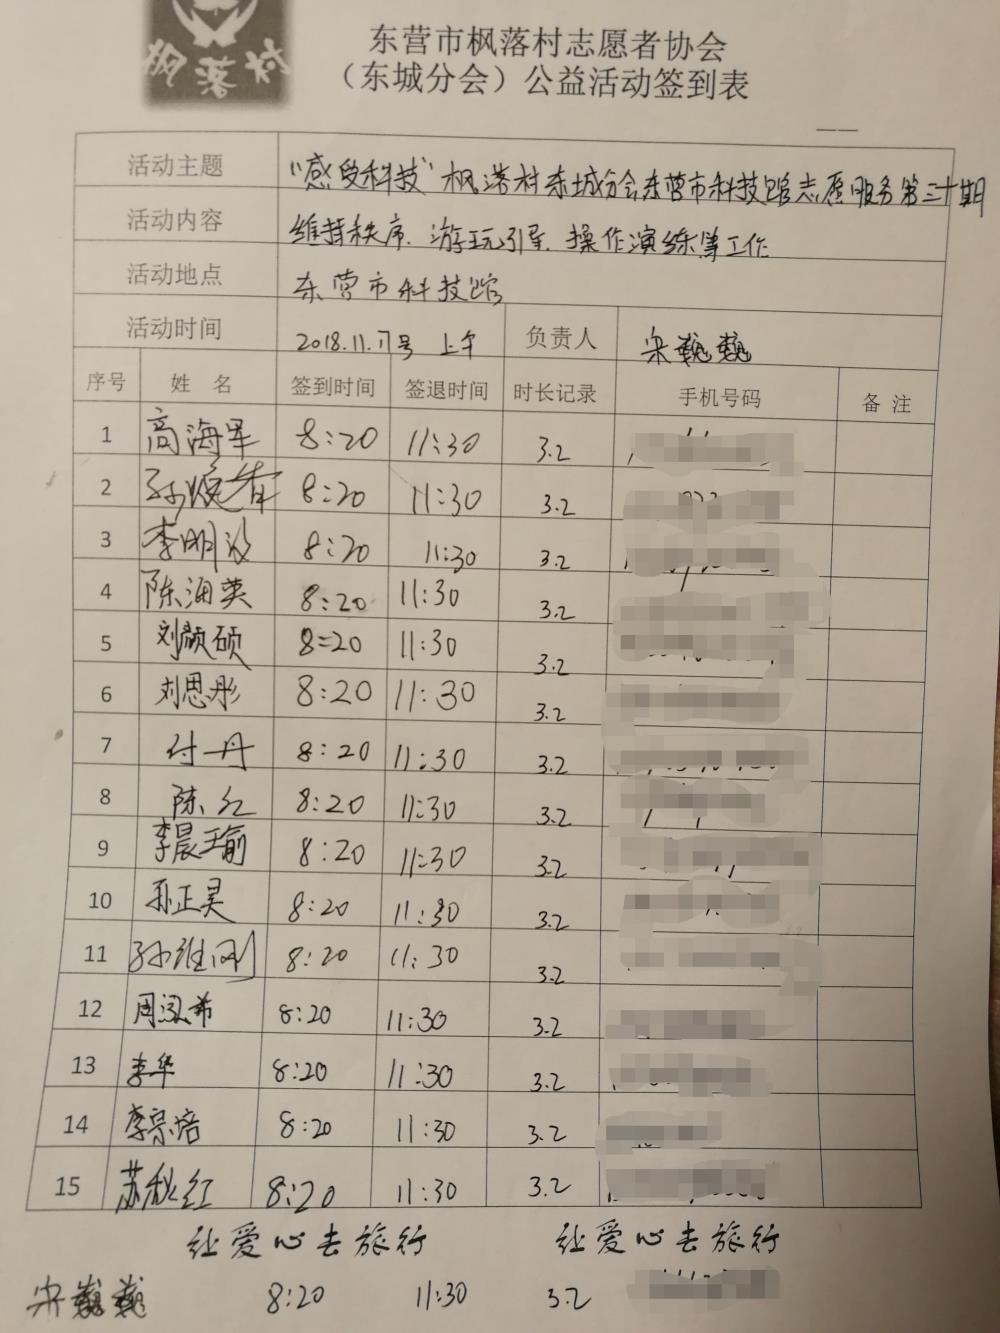 枫落村
东营市枫落村志愿者协会
（东城分会）公益活动签到表
活动主题 “感受科技”枫落村东城分会东营市科技馆志愿服务第三十期
活动内容 维持秩序、游玩引导、操作演练等工作
活动地点 东营市科技馆
活动时间 2018.11.17号 上午 负责人 宋巍巍
序号 姓 名 签到时间 签退时间 时长记录 手机号码 备 注
1 高海军 8:20 11:30 3.2
2 8:20 11:30 3.2
3 李明 8:20 11:30 3.2
4 陈海英 8:20 11:30 3.2
5 刘颜硕 8:20 11:30 3.2
6 刘思彤 8:20 11:30 3.2
7 付丹 8:20 11:30 3.2
8 陈红 8:20 11:30 3.2
9 李晨瑜 8:20 11:30 3.2
10 孙正昊 8:20 11:30 3.2
11 孙维刚 8:20 11:30 3.2
12 周泓希 8:20 11:30 3.2
13 李华 8:20 11:30 3.2
14 李宗培 8:20 11:30 3.2
15 苏秋红 8:20 11:30 3.2
让爱心去旅行 让爱心去旅行
宋巍巍 8:20 11:30 3.2